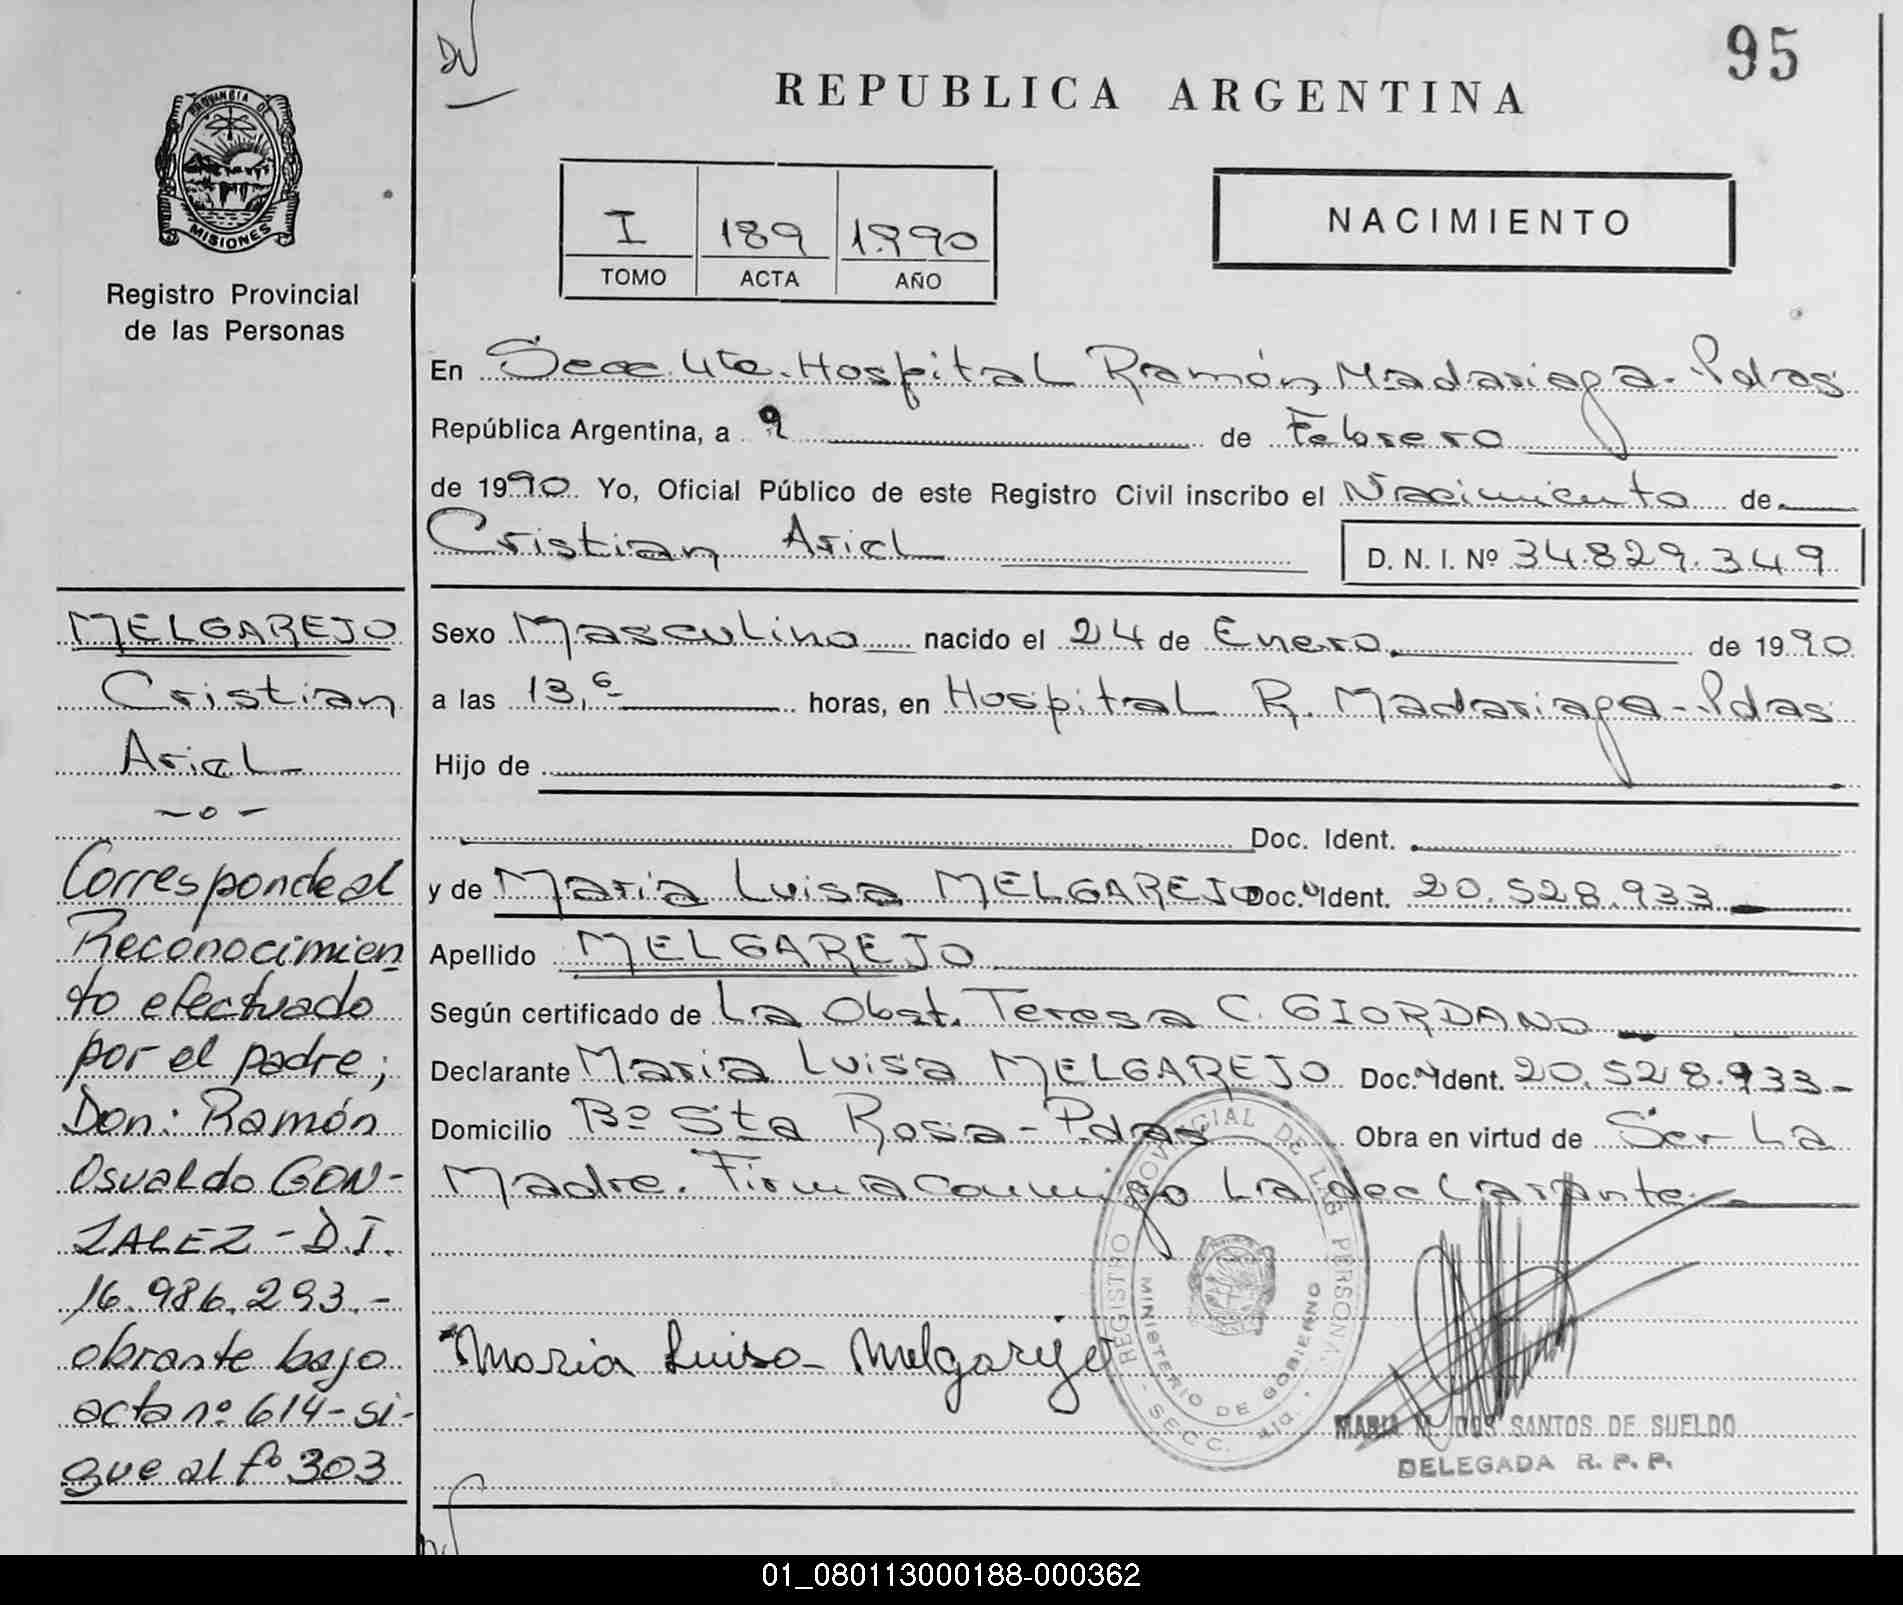 95
REPUBLICA ARGENTINA
PROVINCIA DE
MISIONES
Registro Provincial
de las Personas
I 189 1990
TOMO ACTA AÑO
NACIMIENTO
En Secc. 4ta. Hospital Ramón Madariaga - Pdas
República Argentina, a 9 de Febrero
de 1990 Yo, Oficial Público de este Registro Civil inscribo el Nacimiento de
Cristian Ariel D. N. I. Nº 34.829.349
Sexo Masculino nacido el 24 de Enero de 1990
a las 13,6- horas, en Hospital R. Madariaga - Pdas
Hijo de
Doc. Ident.
y de Maria Luisa MELGAREJO Doc. Ident. 20.528.933
Apellido MELGAREJO
Según certificado de La Obst. Teresa C. GIORDANO
Declarante Maria Luisa MELGAREJO Doc. Ident. 20.528.933-
Domicilio Bº Sta Rosa - Pdas Obra en virtud de Ser La
Madre. Firma conmigo La declarante
Maria Luisa Melgarejo
REGISTRO PROVINCIAL DE LAS PERSONAS
MINISTERIO DE GOBIERNO
SECC. 4ta.
MARIA M. DOS SANTOS DE SUELDO
DELEGADA R. P. P.
MELGAREJO
Cristian
Ariel
-o-
Corresponde al
Reconocimien
to efectuado
por el padre;
Don: Ramón
Osvaldo GON-
ZALEZ - D.I.
16.986.293.-
obrante bajo
acta nº 614 - si-
gue al fº 303
01_080113000188-000362